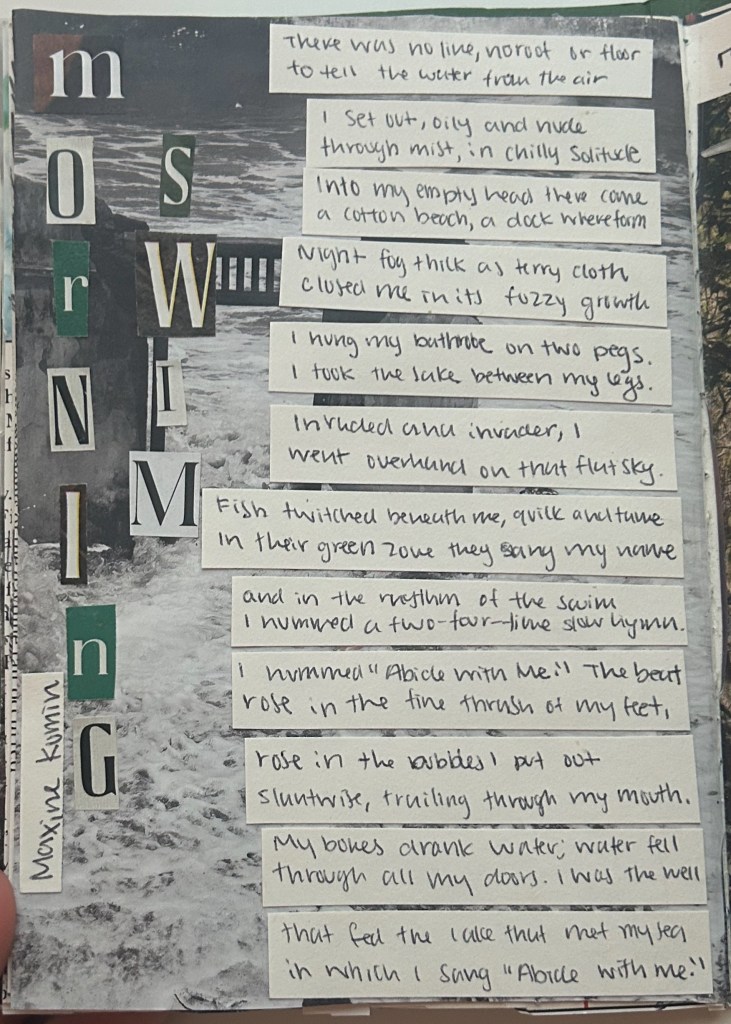 mOrNInG
SWIM
There was no line, no roof or floor
to tell the water from the air
I set out, oily and nude
through mist, in chilly solitude
Into my empty head there come
a cotton beach, a dock wherefrom
Night fog thick as terry cloth
closed me in its fuzzy growth
I hung my bathrobe on two pegs.
I took the lake between my legs.
Invaded and invader, I
went overhand on that flat sky.
Fish twitched beneath me, quick and tame
In their green zone they sang my name
and in the rhythm of the swim
I hummed a two-four-time slow hymn.
I hummed "Abide with Me." The beat
rose in the fine thrash of my feet,
rose in the bubbles I put out
slantwise, trailing through my mouth.
My bones drank water; water fell
through all my doors. I was the well
that fed the lake that met my sea
in which I sang "Abide with me."
Maxine Kumin